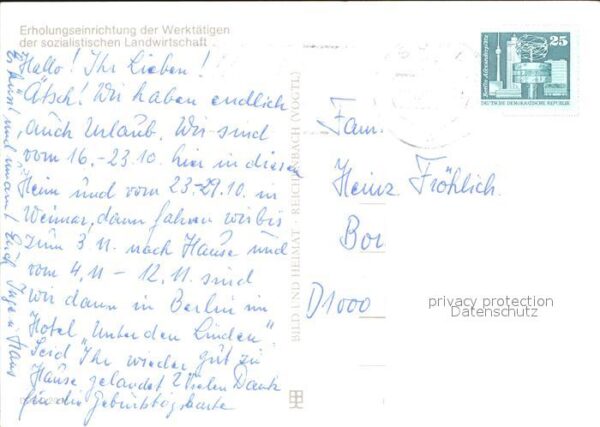 Erholungseinrichtung der Werktätigen
der sozialistischen Landwirtschaft
Hallo! Ihr Lieben!
Ätsch! Wir haben endlich
auch Urlaub. Wir sind
vom 16.-23.10. hier in diesem
Heim und vom 23.-29.10. in
Weimar, dann fahren wir bis
zum 3.11. nach Hause und
vom 4.11 - 12.11. sind
wir dann in Berlin im
Hotel "Unter den Linden".
Seid Ihr wieder gut zu
Hause gelandet? Vielen Dank
für die Geburtstagskarte
Es küsst und umarmt Euch Inge u. Hans
BILD UND HEIMAT · REICHENBACH (VOGTL)
25
Berlin, Alexanderplatz
DEUTSCHE DEMOKRATISCHE REPUBLIK
Fam.
Heinz Fröhlich
Bor
D1000
privacy protection
Datenschutz